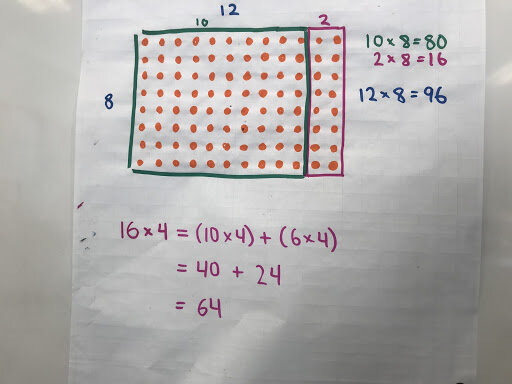 12
10
2
8
10 × 8 = 80
2 × 8 = 16
12 × 8 = 96
16 × 4 = (10 × 4) + (6 × 4)
= 40 + 24
= 64